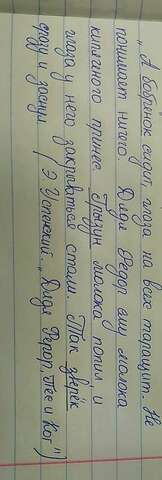 „А бобрёнок сидит, глаза на всех таращит. Не
понимает ничего Дядя Фёдор ему молока
кипячёного принес. Грызун молока попил и
глаза у него закрываться стали. Так зверёк
сразу и заснул (Э. Успенский. „Дядя Фёдор, Пёс и Кот")